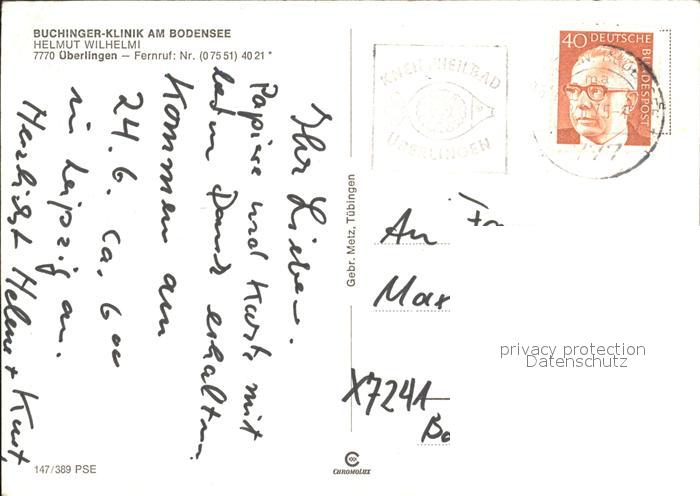 BUCHINGER-KLINIK AM BODENSEE
HELMUT WILHELMI
7770 Überlingen – Fernruf: Nr. (0 75 51) 40 21 *
Ihr Lieben.
Papiere und Karte mit
Dank erhalten.
Kommen am
24. 6. ca. 6 00
in Leipzig an.
Herzlichst Helene + Kurt
147/389 PSE
Gebr. Metz, Tübingen
CHROMOLUX
KNEIPPHEILBAD
ÜBERLINGEN
40 DEUTSCHE
BUNDESPOST
An
Max
X7241
privacy protection
Datenschutz